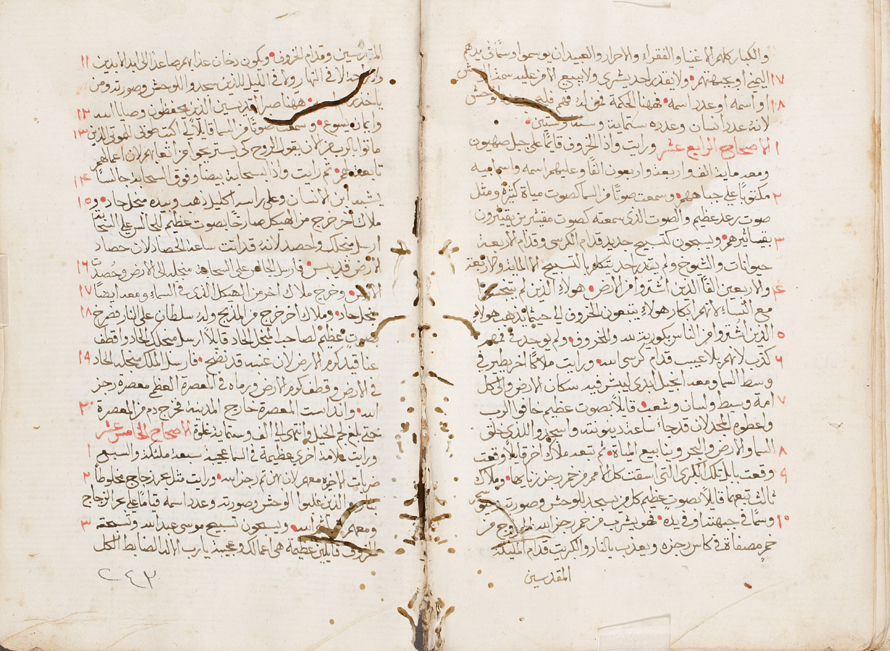 والكبار كلهم الاغنيا والفقراء والاحرار والعبيد ان يوسموا وسمًا في يدهم
١٧ اليمنى او جبهتهم ولا يقدر احد يشتري ولا يبيع الا من عليه سمة الوحش
١٨ او اسمه او عدد اسمه ههنا الحكمة
لانه عدد انسان وعدده ستماية وستة وستين
١ الاصحاح الرابع عشر ورايت واذا الخروف قايمًا على جبل صهيون
ومعه ماية الف واربعة واربعون الفًا وعليهم اسمه واسم ابيه
٢ مكتوبًا على جباههم وسمعت صوتًا من السما كصوت مياة كثيرة ومثل
صوت رعد عظيم والصوت الذي سمعته كصوت مقيثرين يقيثرون
٣ بقيثاثيرهم ويسبحون كتسبيح جديد قدام الكرسي وقدام الاربعة
حيوانات والشيوخ ولم يقدر احد يتعلم التسبيح الا الماية والاربعة
٤ والاربعين الفًا الذين اشتروا من الارض هولاء الذين لم يتنجسوا
مع النساء لانهم ابكار هولاء يتبعون الخروف الى حيث يذهب هولاء
٥ الذين اشتروا من الناس بكورية لله وللخروف ولم يوجد في فمهم
٦ كذب لانهم بلا عيب قدام كرسي الله ورايت ملاكًا اخر يطير في
وسط السما ومعه انجيل ابدي ليبشر فيه سكان الارض وكل
٧ امة وسبط ولسان وشعب قايلاً بصوت عظيم خافوا الرب
واعطوه المجد لان قد جاءت ساعة دينونته واسجدوا للذي خلق
٨ السما والارض والبحر وينابيع المياة ثم تبعه ملاك اخر قايلاً وقعت
٩ وقعت بابل تلك الكبرى التي اسقت كل الامم من خمر رجز زناها وملاك
ثالث تبعهما قايلاً بصوت عظيم كل من يسجد للوحش وصورته
١٠ وسمًا في جبهته او في يده فهو يشرب من خمر رجز الله
خمر مصفاة في كاس رجزه ويعذب بالنار والكبريت قدام الملايكة
المقدسين
١١ المقدسين وقدام الخروف ويكون دخان عذابهم صاعدًا الى ابد الابدين
لا في النهار ولا في الليل الذين سجدوا للوحش وصورته ومن
١٢ ياخذ ههنا صبر القديسين الذين يحفظون وصايا الله
١٣ وايمان يسوع وسمعت صوتًا من السما قايلاً لي اكتب طوبى الموتى الذين
ماتوا بالرب من الان يقول الروح كي يستريحوا من اتعابهم لان اعمالهم
١٤ تابعة لهم ثم رايت واذا سحابة بيضا وفوق السحابة جالسًا
١٥ يشبه ابن الانسان وعلى راسه اكليل ذهب وبيده منجل حاد و
ملاك اخر خرج من الهيكل صارخًا بصوت عظيم للجالس على السحابة
ارسل منجلك واحصد لانه قد اتت ساعة الحصاد لان حصاد
١٦ الارض قد يبس فارسل الجالس على السحابة منجله الى الارض وحصدت
١٧ الارض وخرج ملاك اخر من الهيكل الذي في السماء ومعه ايضًا
١٨ منجل حاد وملاك اخر خرج من المذبح وله سلطان على النار فصرخ
بصوت عظيم لصاحب المنجل الحاد قايلاً ارسل منجلك الحاد واقطف
١٩ عناقيد كرم الارض لان عنبه قد نضج فارسل الملاك منجله الحاد
في الارض وقطف كرم الارض ورماه في المعصرة العظيمة معصرة رجز
٢٠ الله وانداست المعصرة خارج المدينة فخرج دم من المعصرة
حتى بلغ لجم الخيل وانتهى الى الف وستماية غلوة الاصحاح الخامس عشر
١ ورايت علامة اخرى عظيمة في السما عجيبة سبعة ملايكة والسبع
٢ ضربات الاخيرة معهم لان بهن تم رجز الله ورايت مثل بحر زجاج مخلوطًا
الذين غلبوا الوحش وصورته وعدد اسمه قيامًا على بحر الزجاج
٣ ومعهم الله ويسبحون تسبيح موسى عبد الله وتسبحة
الخروف قايلين عظيمة هي اعمالك وعجيبة يا رب الاله الضابط الكل
٢٤٣